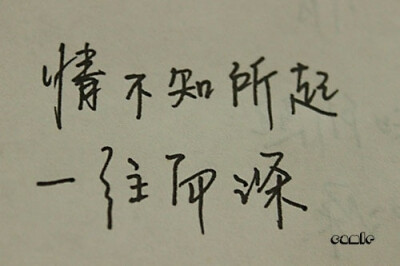 情不知所起
一往而深
camle